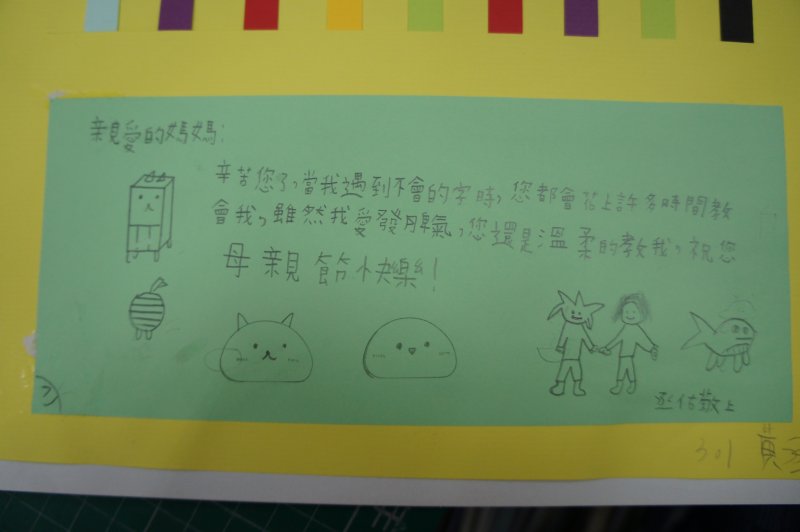 親愛的媽媽:
辛苦您了,當我遇到不會的字時,您都會花上許多時間教
會我,雖然我愛發脾氣,您還是溫柔的教我,祝您
母親節快樂!
丞佑敬上
301 黃